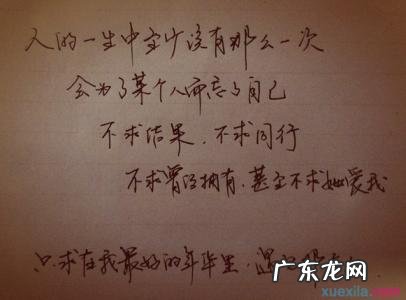 人的一生中至少没有那么一次
会为了某个人而忘了自己
不求结果.不求同行
不求曾经拥有.甚至不求她爱我
只求在我最好的年华里.遇
广东龙网
xuexila.com